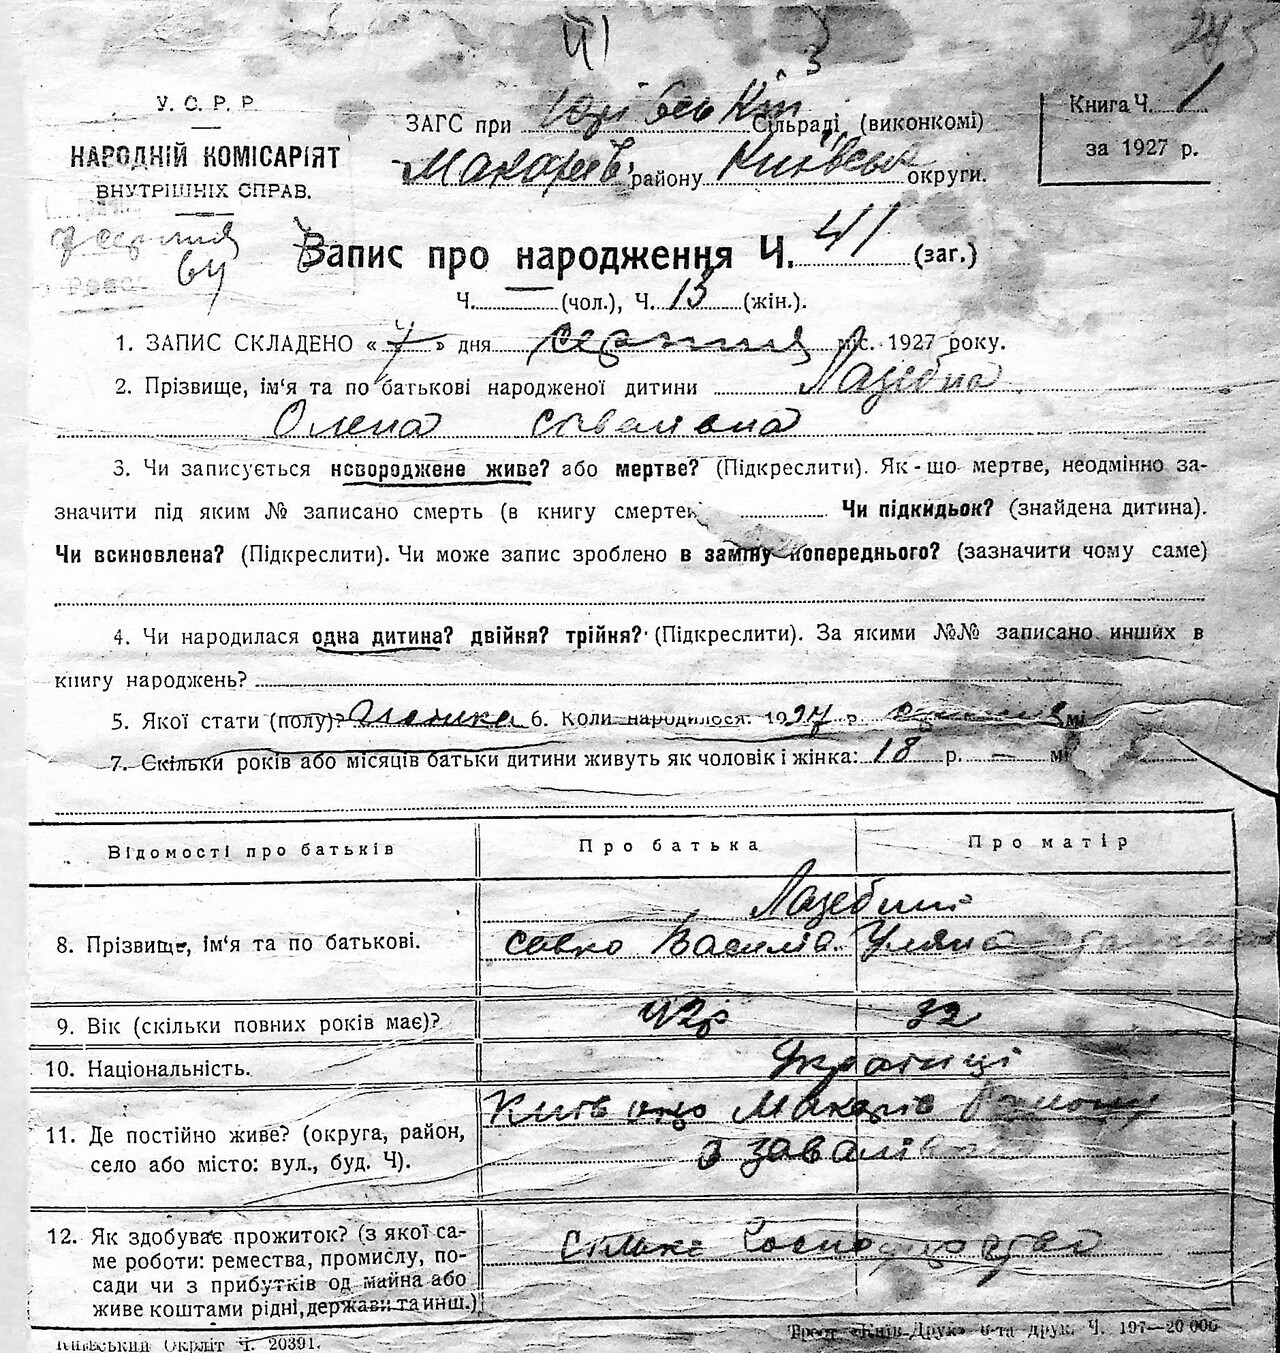 41
У. С. Р. Р.
НАРОДНІЙ КОМІСАРІЯТ
ВНУТРІШНІХ СПРАВ.
ЗАГС при Сільраді (виконкомі)
Макарів району Київської округи.
Книга Ч. 1
за 1927 р.
7 серпня
Запис про народження Ч. 41 (заг.)
Ч. (чол.), Ч. 13 (жін.).
1. ЗАПИС СКЛАДЕНО «7» дня серпня міс. 1927 року.
2. Прізвище, ім'я та по батькові народженої дитини Лазебна
Олена
3. Чи записується новороджене живе? або мертве? (Підкреслити). Як-що мертве, неодмінно за-
значити під яким № записано смерть (в книгу смертей Чи підкидьок? (знайдена дитина).
Чи всиновлена? (Підкреслити). Чи може запис зроблено в заміну попереднього? (зазначити чому саме)
4. Чи народилася одна дитина? двійня? трійня? (Підкреслити). За якими №№ записано инших в
книгу народжень?
5. Якої стати (полу)? 6. Коли народилося: 1927 р. мі
7. Скільки років або місяців батьки дитини живуть як чоловік і жінка: 18 р. — мі
Відомості про батьків Про батька Про матір
Лазебні
8. Прізвище, ім'я та по батькові. Савко Василів Уляна
9. Вік (скільки повних років має)? 42р 32
10. Національність. Українці
Київ окр Макарів Району
11. Де постійно живе? (округа, район,
село або місто: вул., буд. Ч). с Завалівка
12. Як здобуває прожиток? (з якої са-
ме роботи: ремества, промислу, по-
сади чи з прибутків од майна або
живе коштами рідні, держави та инш.)
сільське господарство
Київський Окрліт Ч. 20391.
Трест «Київ-Друк» 6-та друк. Ч. 197—20 000